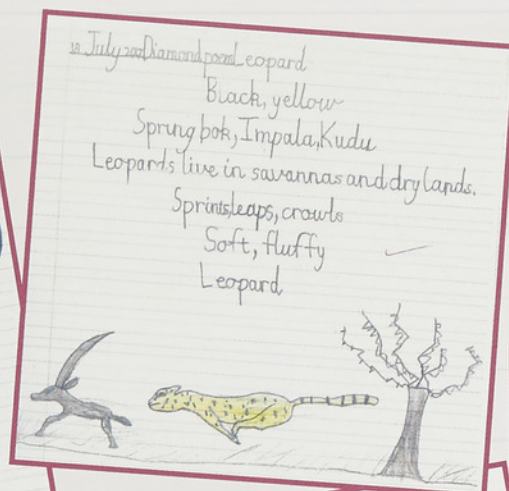 18 July Diamond poem Leopard
Black, yellow
Springbok, Impala, Kudu
Leopards live in savannas and dry lands.
Sprints, leaps, crawls
Soft, fluffy
Leopard